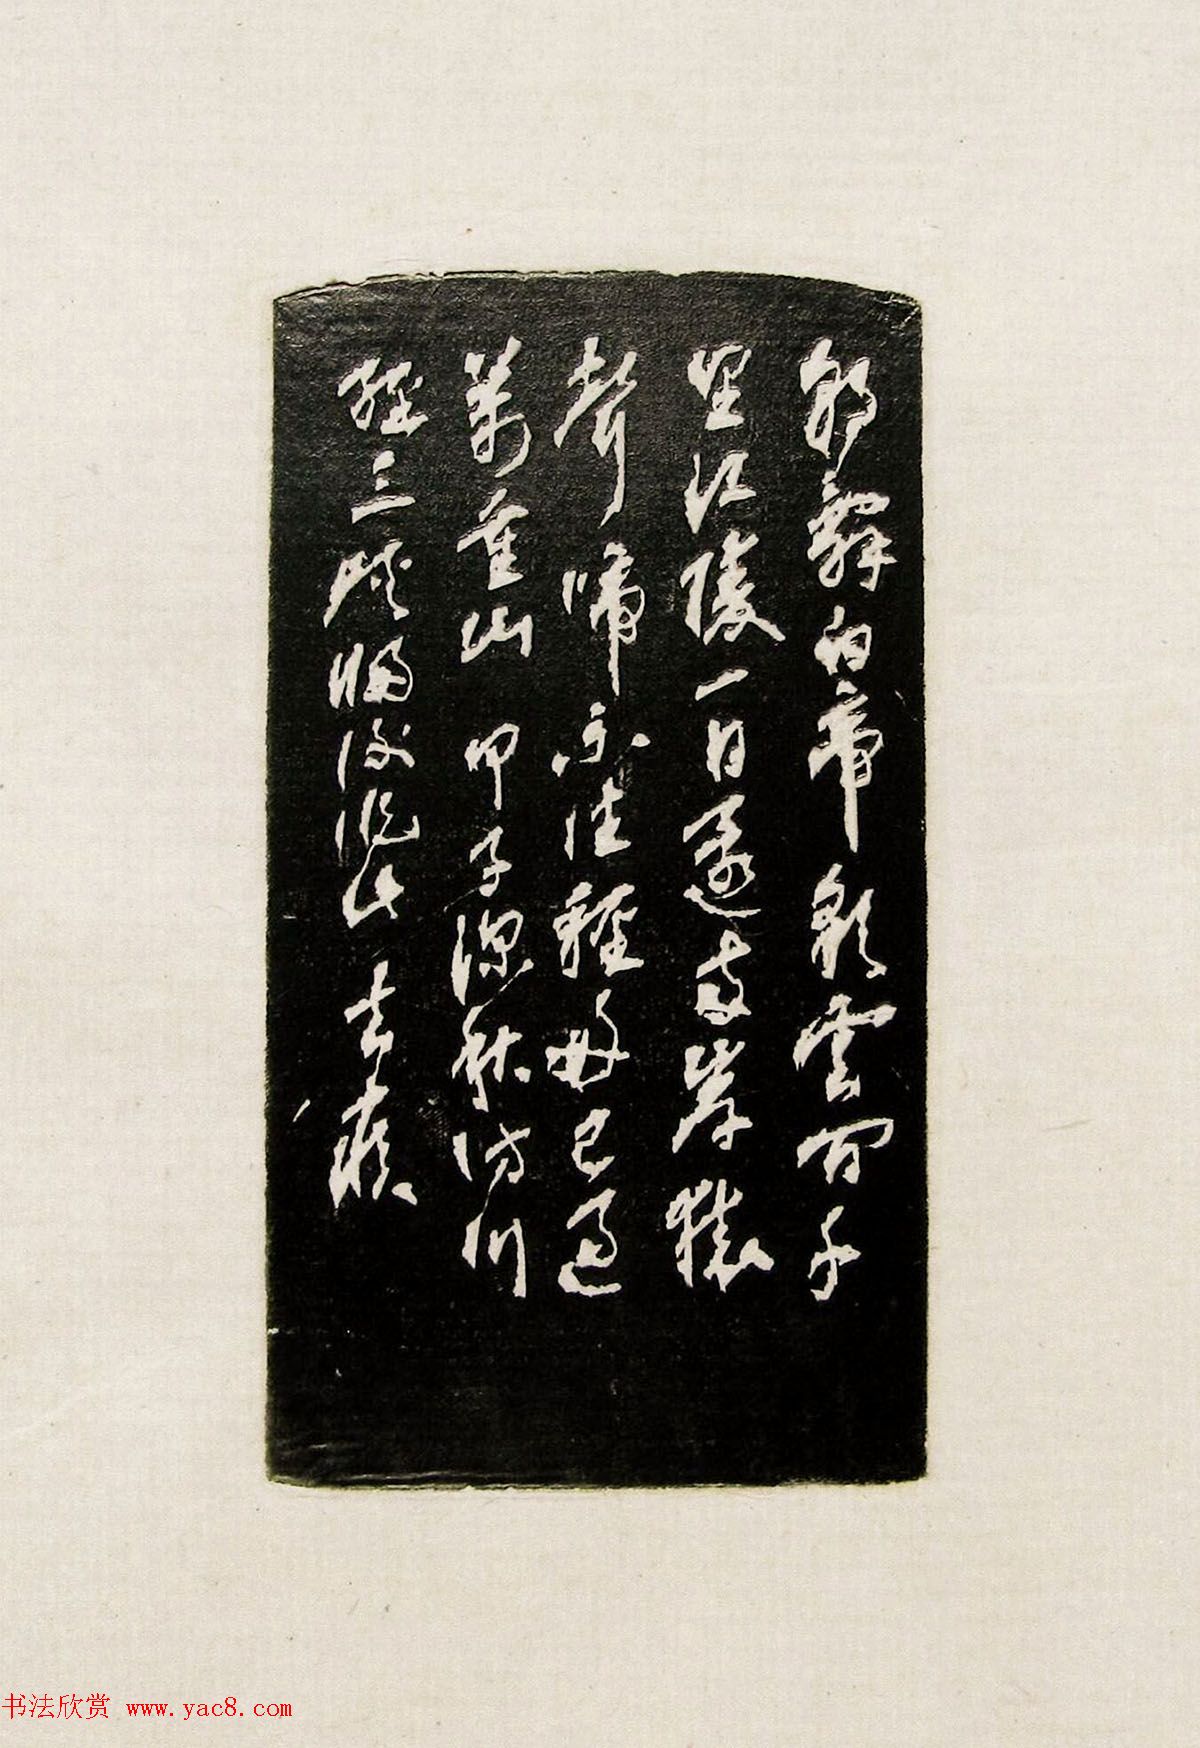 朝辭白帝彩雲間千
里江陵一日還兩岸猿
聲啼不住輕舟已過
萬重山 甲子深秋訪川
經三峽歸後記此 去疾
书法欣赏 www.yac8.com